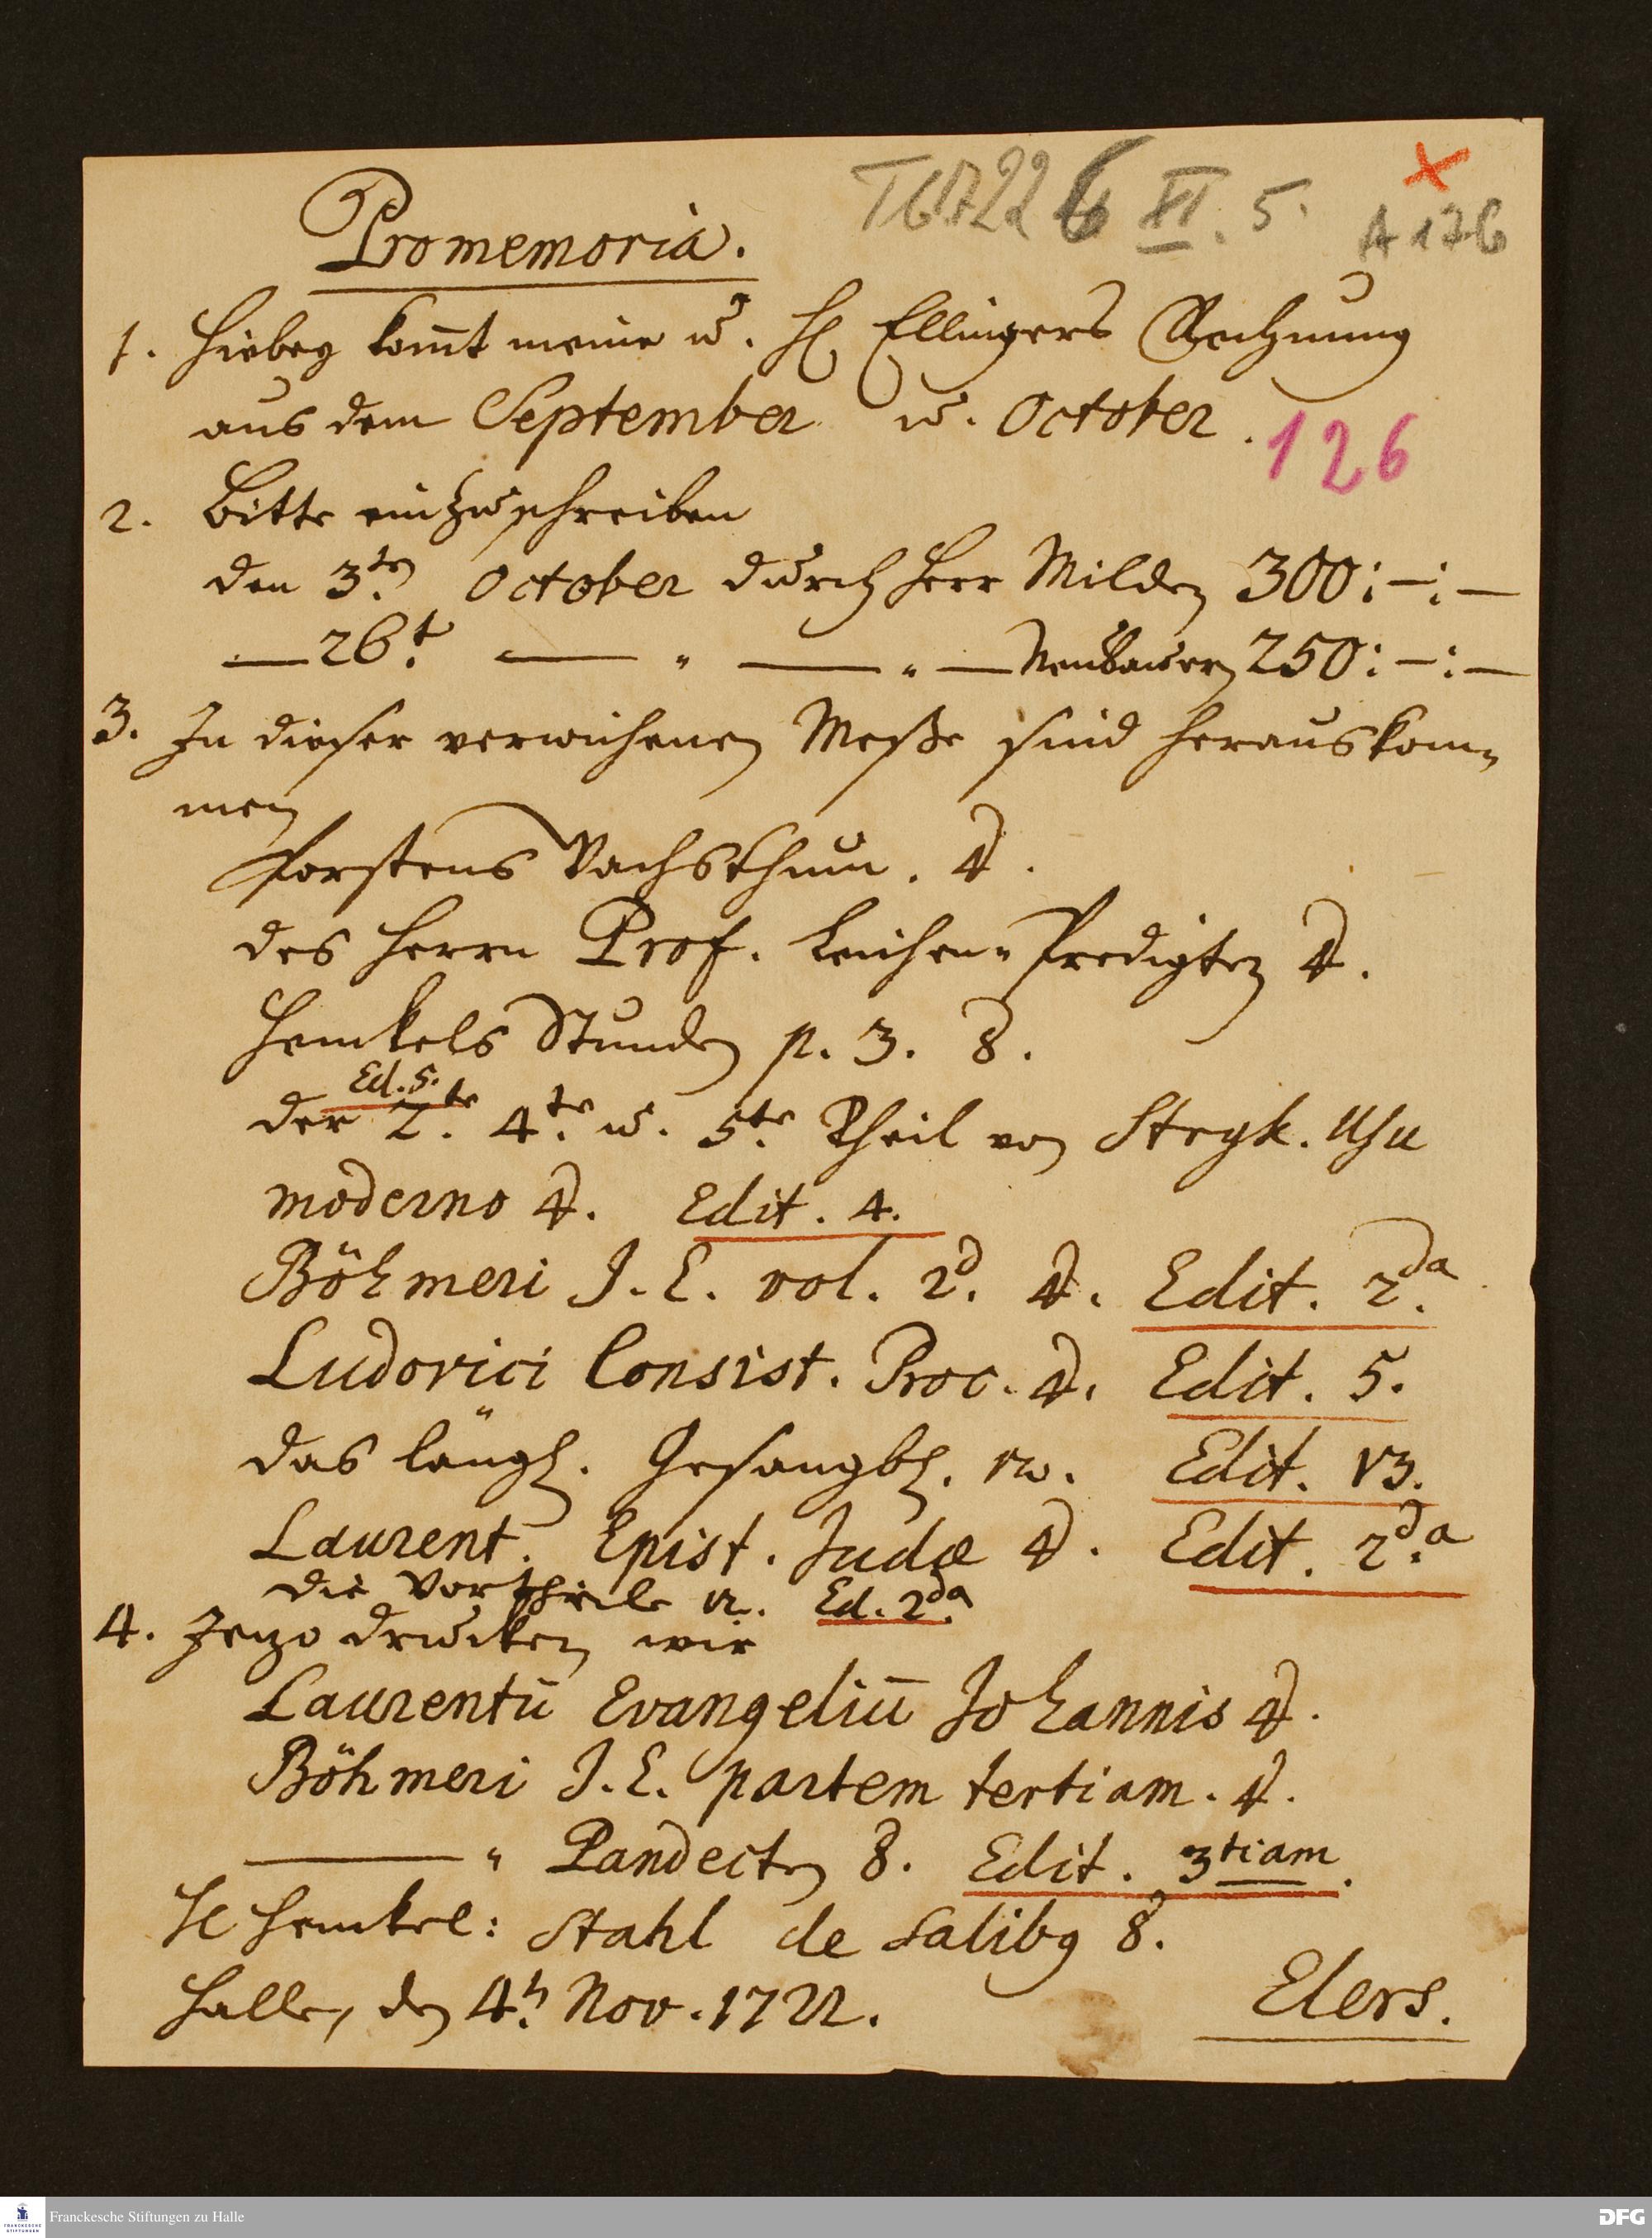 Promemoria.
XI. 5.
A 176
1. Hiebey kom̄t meine u. H Ellingers Rechnung
aus dem September u. October.
126
2. Bitte einzuschreiben
den 3te October durch Herr Milden 300:-:-
— 26t — " — " — Neubauern 250:-:-
3. In dieser verwichenen Meße sind herauskom=
men
Porstens Wachsthum. 4.
des Herrn Prof. Leichen=Predigten 4.
Henckels Stunden p. 3. 8.
Ed. 5.
der 2.te 4.te u. 5te Theil von Stryk. Usu
moderno 4. Edit. 4.
Böhmeri J. E. vol. 2d. 4. Edit. 2.da
Ludovici Consist. Proc. 4. Edit. 5.
das längl. Gesangb. 12. Edit. 13.
Laurent. Epist. Judæ 4. Edit. 2.da
die Vortheile 12. Ed. 2da
4. Jetzo drucken wir
Laurentii Evangeliū Johannis 4.
Böhmeri J. E. partem tertiam. 4.
— " Pandecten 8. Edit. 3tiam.
H Henckel: Stahl de Salibg 8.
Halle, den 4.h Nov. 1722.
Elers.
Franckesche Stiftungen zu Halle
DFG